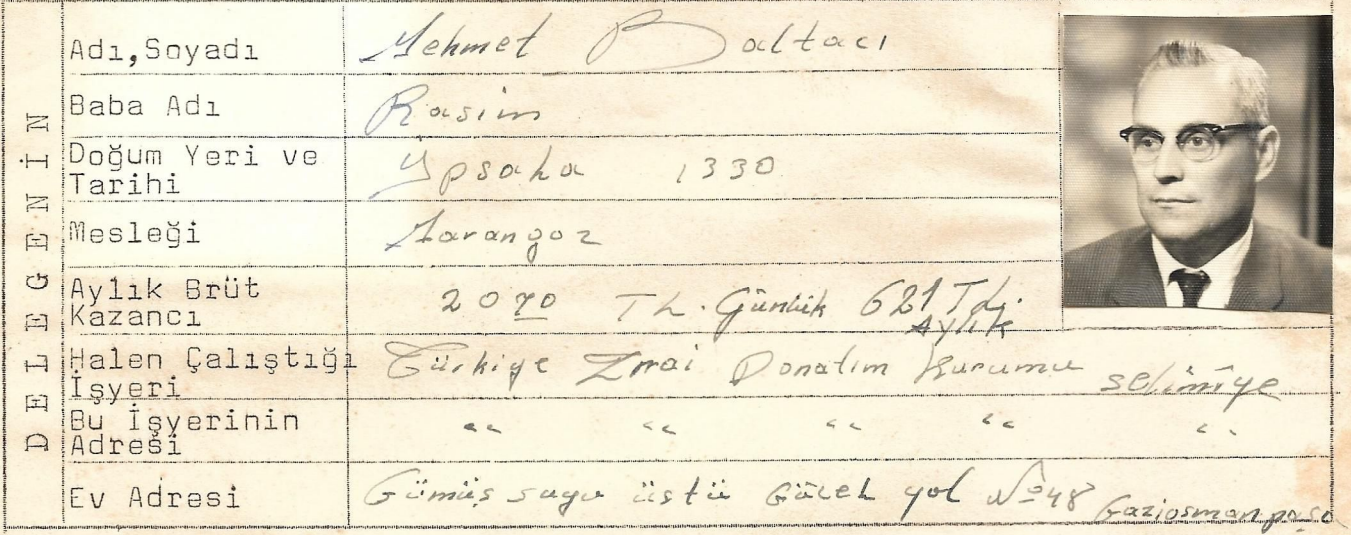 DELEGENİN
Adı,Soyadı Mehmet Baltacı
Baba Adı Rasim
Doğum Yeri ve
Tarihi Ypsaha 1330
Mesleği Marangoz
Aylık Brüt
Kazancı 20 70 TL. Günlük 621 TL.
Aylık
Halen Çalıştığı
İşyeri Türkiye Zırai Donatım Kurumu selimiye
Bu İşyerinin
Adresi " " " " "
Ev Adresi Gümüş suyu üstü yol No 48 Gaziosmanpaşa